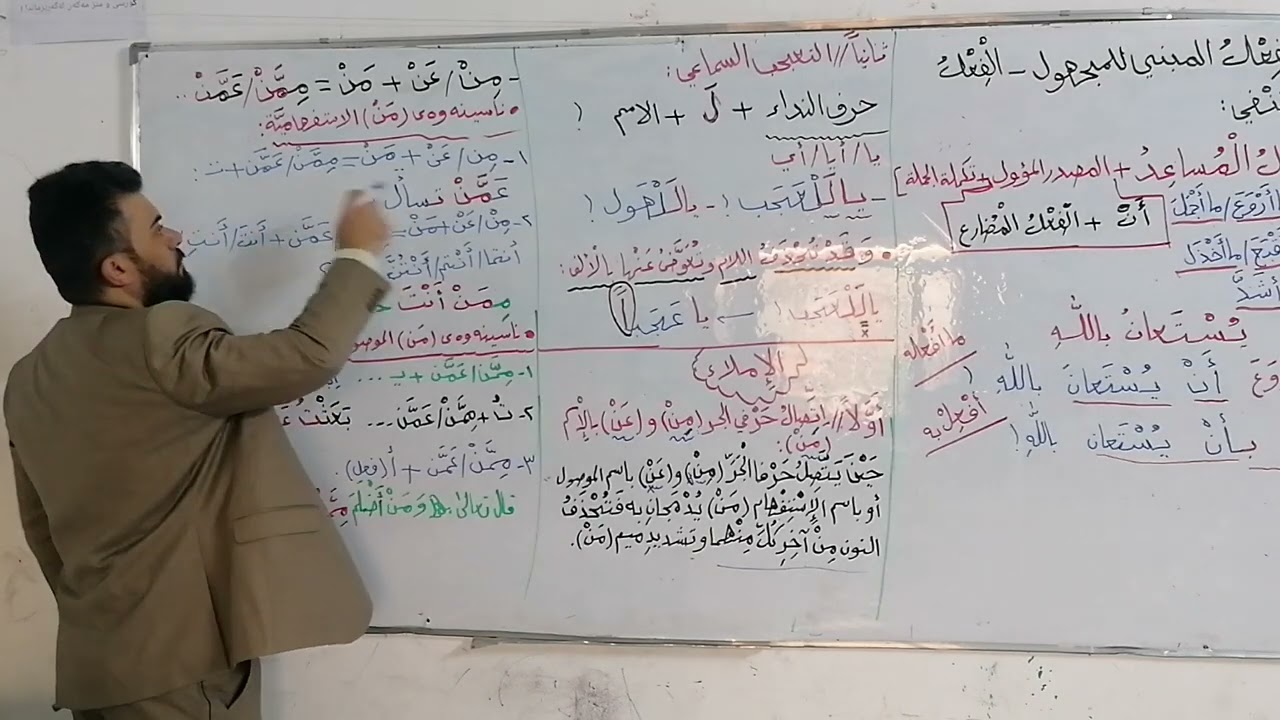 فِعْلُ المبني للمجهول - الْفِعْلُ
نْفي:
لُ الْمُساعِدُ + المصدر المؤول + تكملة الجملة]
أَنْ + الْفِعْلُ الْمُضارِع
أَرْوَعَ / ما أَجْمَلَ
ما أَجْدَلَ
أَشدَّ
يُسْتَعانُ بِاللّٰهِ
ما أَفْعَلَه
وَعَ أَنْ يُسْتَعانَ بِاللّٰهِ !
أَفْعِلْ بِه
بِأَنْ يُسْتَعان بِاللّٰهِ!
ثانياً // التعجب السماعي:
حرف النداء + لَ + الاسم !
يا / أيا / أي
- يا لَلْعَجَب ! - يا لَلْهَول !
• وَقَدْ تُحْذَفُ اللام وَتُعَوَّضُ عَنْها بالألف:
يا لَلْعَجَب ! ← يا عَجَبا
الإملاء
أَوَّلاً // اِتِّصالُ حَرْفي الجر (مِنْ) و (عَنْ) بالإسم
(مَنْ):
حَيْثُ يَتَّصِلُ حَرْفا الْجَرِّ (مِنْ) و (عَنْ) باسم الموصول
أو باسم الإِسْتِفْهام (مَنْ) يُدْمَجانِ به فَتُحْذَفُ
النون مِنْ آخِرِ كُلِّ مِنْهُما وتشديدِ ميم (مَنْ).
- مِنْ / عَنْ + مَنْ = مِمَّنْ / عَمَّنْ ..
• ناسینەوەی (مَنْ) الاستفهاميَّة:
١- مِن / عَنْ + مَنْ = مِمَّنْ / عَمَّن + ت :
عَمَّنْ تسأل
٢- مِنْ / عَن + مَنْ = عَمَّن + أَنتَ / أَنتِ
أنتما / أَنْتُم / أَنْتُنَّ
مِمَنْ أَنْتَ
• ناسینەوەی (مَن) الموصو
١- مِمَّن / عَمَّن + يـ ...
٢- تُ + مِمَّنْ / عَمَّن ...
٣- مِمَّنْ / عَمَّن + أ (فعل).
قال تعالى: وَمَنْ أَظْلَمَ مِمَّ